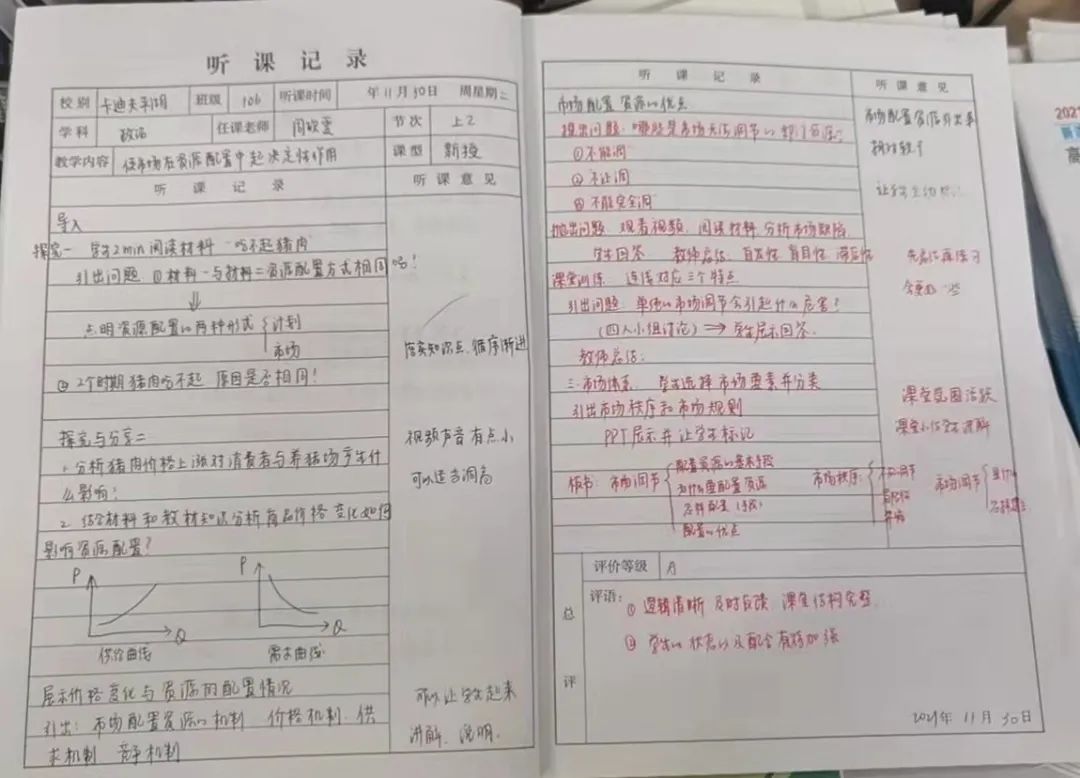 听课记录
校别 卡迪夫平湖 班级 106 听课时间 年11月30日 周星期二
学科 政治 任课老师 周 节次 上2
教学内容 使市场在资源配置中起决定性作用 课型 新授
听课记录 听课意见
导入
探究一 学生2min阅读材料 吃不起猪肉
引出问题 ①材料一与材料二资源配置方式相同吗!
⇓
点明资源配置的两种形式 { 计划
市场
落实知识点、循序渐进
② 2个时期猪肉吃不起 原因是否相同!
探究与分享二
视频声音有点小
1. 分析猪肉价格上涨对消费者与养猪场产生什
可以适当调高
么影响?
2. 结合材料和教材知识分析商品价格变化如何
影响资源配置?
P Q
供给曲线
P Q
需求曲线
展示价格变化与资源的配置情况
可以让学生起来
引出: 市场配置资源的机制 价格机制、供
讲解、说明.
求机制 竞争机制
听课记录 听课意见
市场配置资源的优点
市场配置资源
提出问题: 哪些是市场无法调节的
探讨较少
①不能调
②不让调
让学生
③不能完全调
抛出问题 观看视频 阅读材料 分析市场缺陷
学生回答 教师总结: 自发性 盲目性 滞后性
先总结再练习
课堂训练: 连线对应三个特点
会更好一些
引出问题: 单纯的市场调节会引起什么危害?
(四人小组讨论) ⇒ 学生展示回答.
教师总结:
三.市场体系 学生选择市场要素并分类
课堂氛围活跃
引出市场秩序和市场规则
PPT展示并让学生标记
板书: 市场调节 { 配置资源的基本手段
为什么要配置资源
怎样配置(手段)
配置的优点
市场秩序:
市场调节
总评
评价等级 A
评语: ① 逻辑清晰 及时反馈 课堂结构完整.
② 学生的状态以及配合有待加强
2021年 11月 30日
2021
高